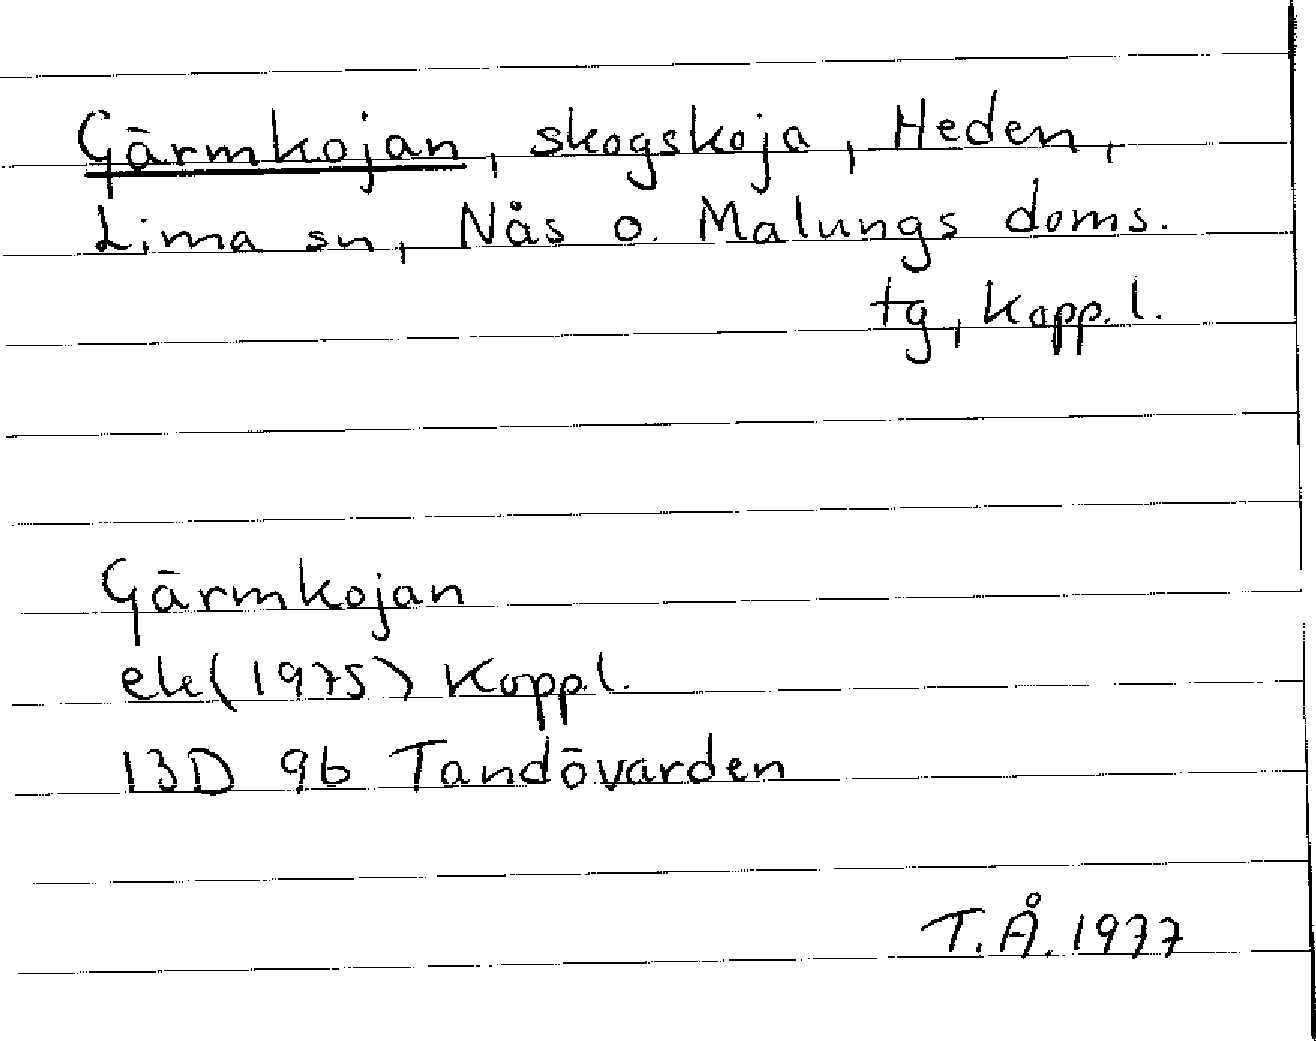 Gärmkojan, skogskoja, Heden,
Lima sn, Nås o. Malungs doms.
tg, Kopp. l.
Gärmkojan
ek (1975) Kopp.l.
13D 9b Tandövarden
T.Å. 1977